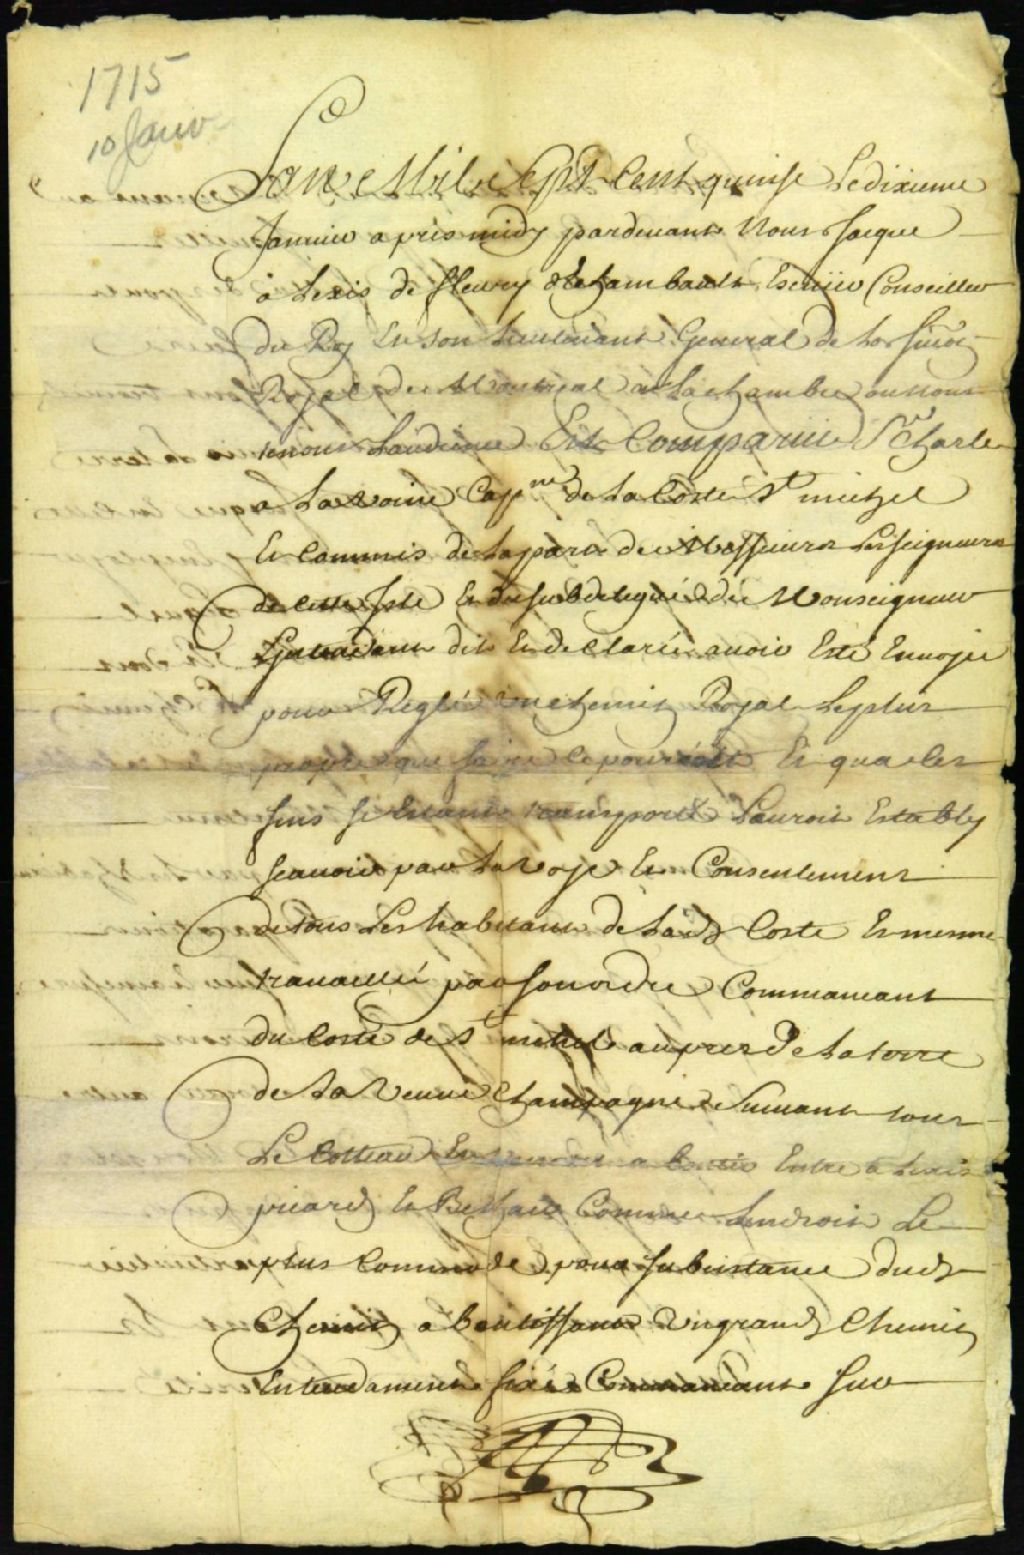 1715
10 Janv
Lan Mil Sept Cent quinse Le dixieme
Januier apres midy pardeuant Nous Jacque
alexis de fleury deschambault Escuier Conseiller
du Roy Et son Lieutenant General de la Juridn
Royal de Montreal a la chambre ou nous
tenons Laudience Est Comparue Sr Charle
a Capne de La Coste St michel
Et Commis de la part de Messieurs Les seigneurs
de cette Isle Et du subdelegué de Monseigneur
Lintendant dit Et declaré auoir Esté Enuoyé
pour Reglé un chemin Royal Le plus
propre que faire ce pouroit Et qua ces
fins sestant transporté Lauroit Estably
scauoir par La voye Et Consentement
de tous Les habitant de Lad Coste Et mesme
trauaillé par son ordre Commancant
du Costé de St michel aupres de La terre
de La Veuue Champagne Suiuant tout
Le Costeau a boutir Entre alexis
picard Et Comme Lendroit Le
plus Commode pour subsistance dud
Chemin aboutissant un grand Chemin
Entendament fixé Commancant sur